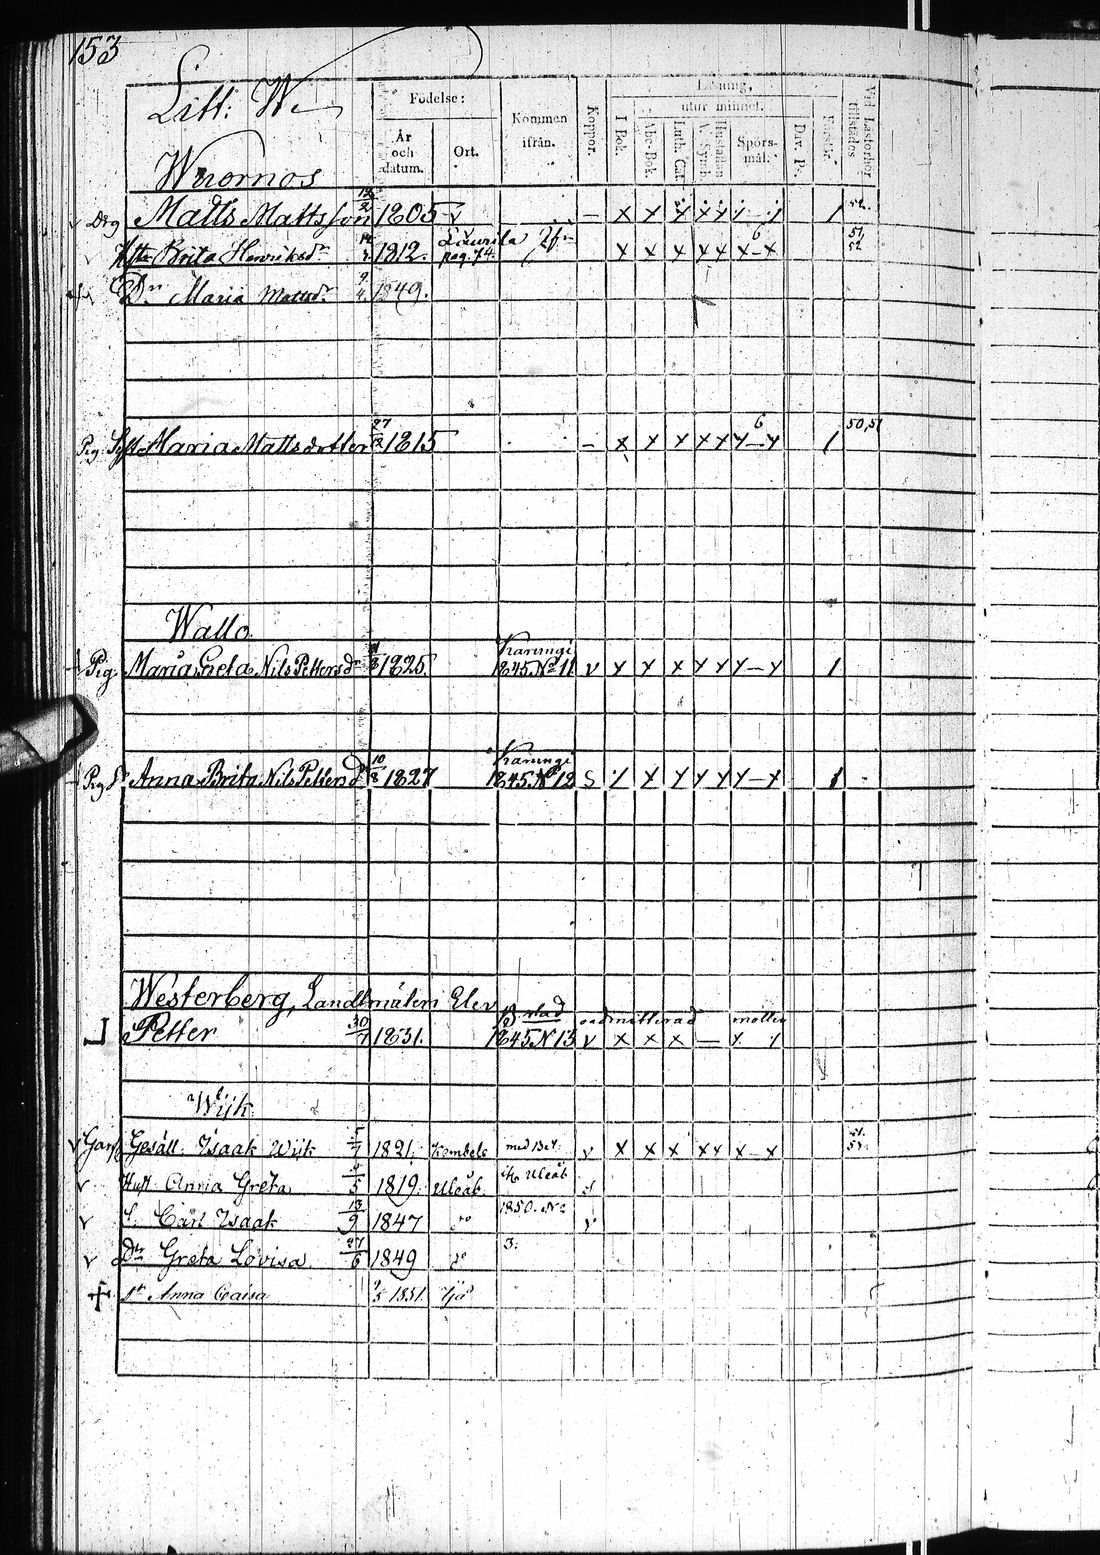 153
Litt: W.
Födelse:
År och datum.
Ort.
Kommen ifrån.
Koppor.
Läsning,
utur minnet.
I Bok.
Abc-Bok
Luth. Cat.
Hustaflan A. Symb.
Spörs-mål.
Dav. Ps.
Förstår.
Vid Läsförhör tillstädes
Wuornos
Drg Matts Mattsson 1805 – x x x x x x x 1
Hu Brita Henriksdr 1812. Laurila pag. 74. x x x x x x – x 6 51, 52
Dr Maria Mattsdr 9/4 1849.
Pig. Syst. Maria Mattsdotter 27/2 1815 – x x x x x x – x 6 1 50, 51
Wallo
Pig. Maria Greta Nils Pettersdr 1825. Karungi 1845 No 11 v x x x x x x – x 1
Pig Sr Anna Brita Nils Pettersdr 10/8 1827 Karungi 1845 No 12 S x x x x x x – x 1
Westerberg, Landtmäteri Elev
Petter 30/7 1831. 1845 N 13 v x x x — x x
Wijk.
Gesäll. Isaak Wiik 5/7 1821. med Bet. v x x x x x x – x
Hust Anna Greta 1819. Uleåb. Uleåb
S. Carl Isaak 13/9 1847 do 1850. No v
Dr Greta Lovisa 27/6 1849 do 3.
Anna Caisa 1851.